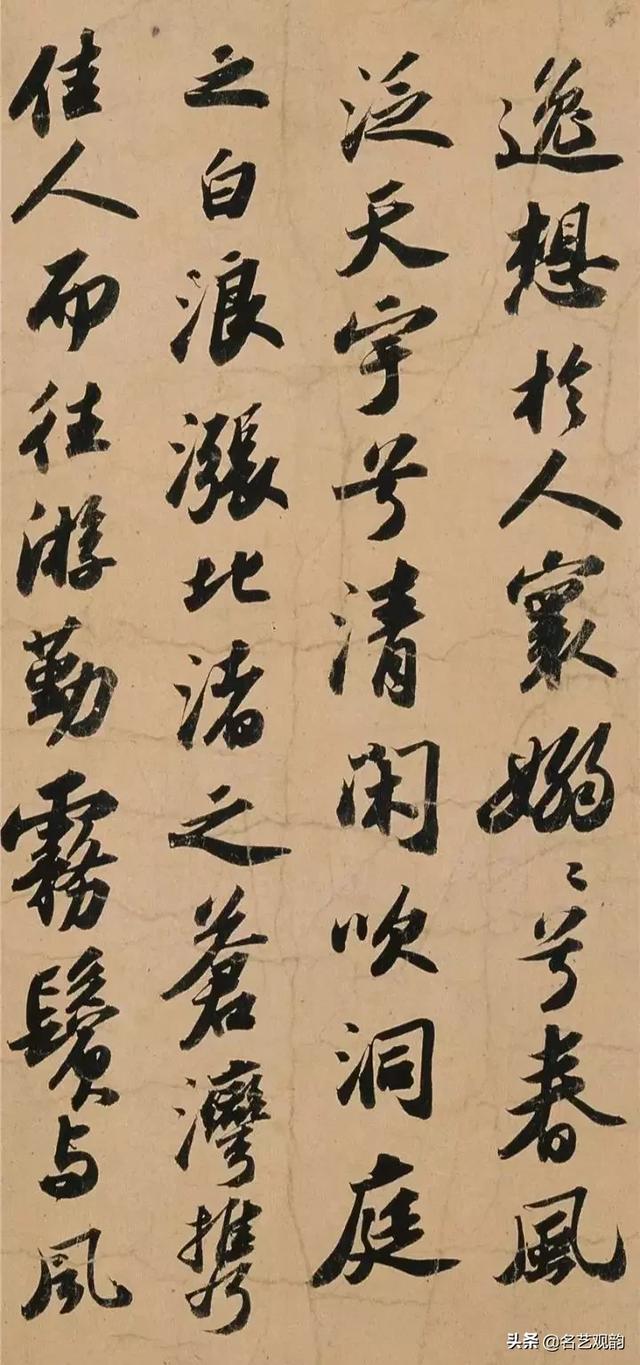 逸想於人寰嫋〻兮春風
泛天宇兮清閑吹洞庭
之白浪漲北渚之蒼灣攜
佳人而往游勤霧鬢与風
头条 @名艺观韵